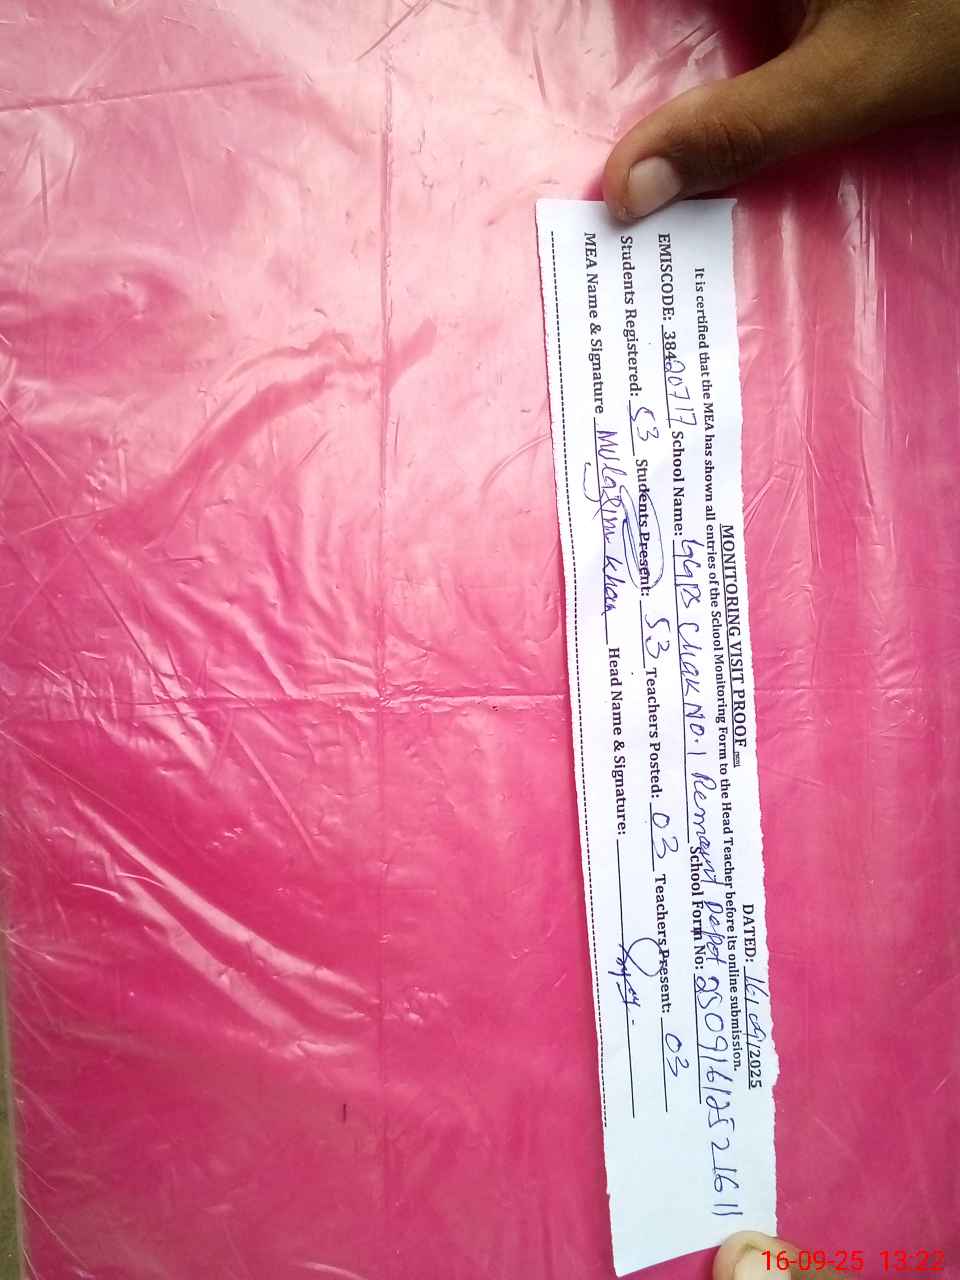 MONITORING VISIT PROOF
DATED: 16/09/2025
It is certified that the MEA has shown all entries of the School Monitoring Form to the Head Teacher before its online submission.
EMISCODE: 38420717 School Name: GGPS Chak No.1 Remount Depot School Form No: 25091612521611
Students Registered: 53 Students Present: 53 Teachers Posted: 03 Teachers Present: 03
MEA Name & Signature Mulazim Khan Head Name & Signature:
16-09-25 13:22